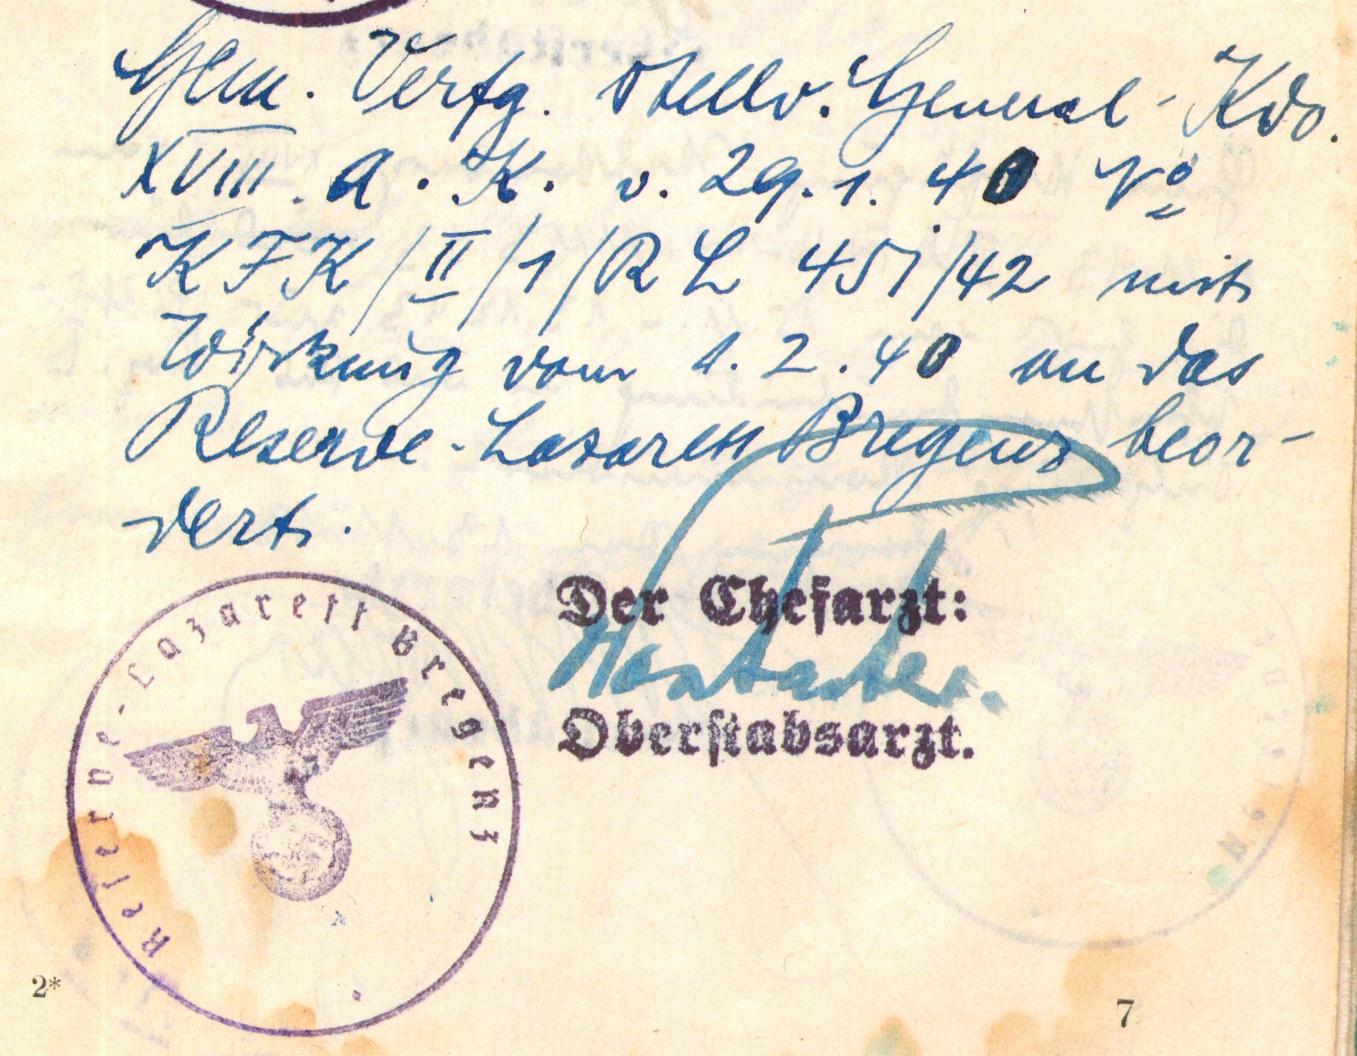 Gem. Verfg. Stellv. General-Kdo.
XVIII. A. K. v. 29. 1. 40 No
KFK/II/1/RL 451/42 mit
Wirkung vom 1. 2. 40 an das
Reserve-Lazarett Bregenz beor-
dert.
Reserve-Lazarett Bregenz
Der Chefarzt:
Oberstabsarzt.
2*
7